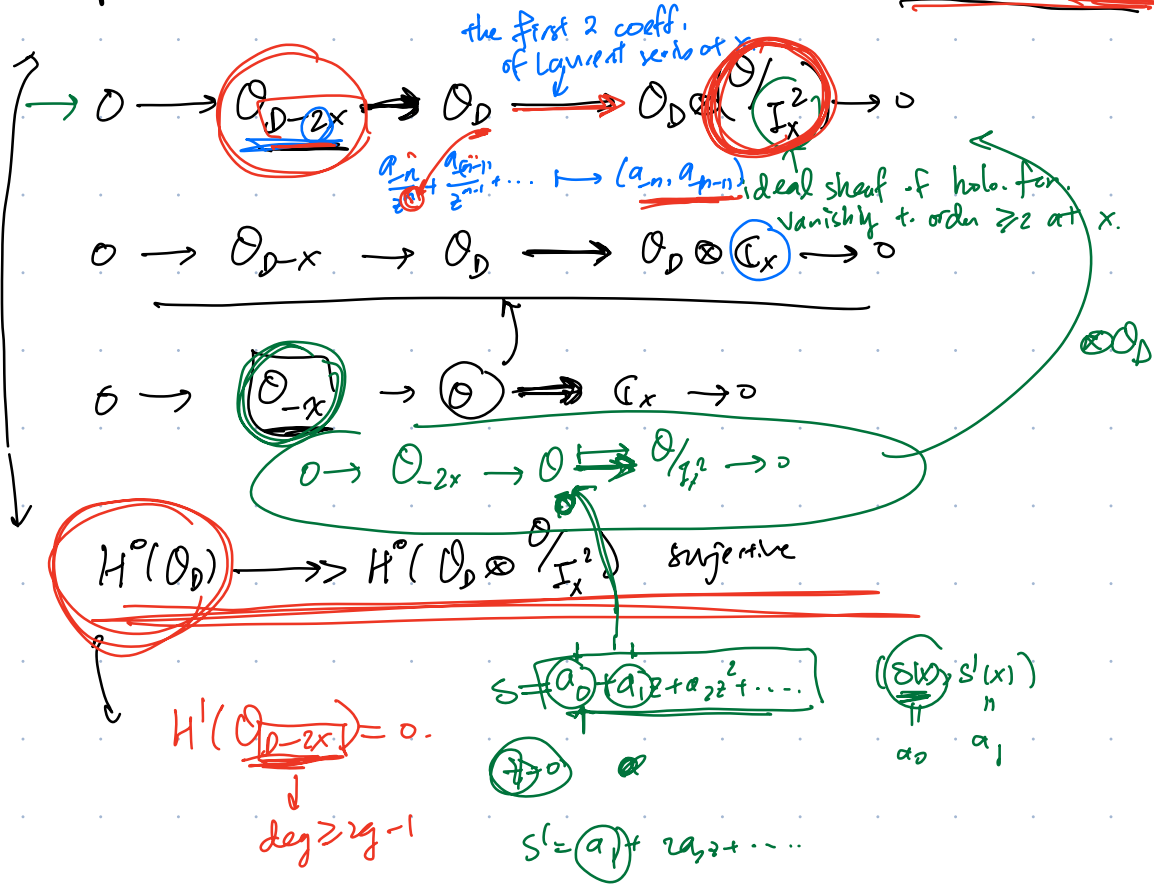 the first 2 coeff.
of Laurent series at x
0 → O_{D-2x} → O_D → O_D ⊗ (O/I_x^2) → 0
a_{-n}/z^n + a_{-(n-1)}/z^{n-1} + ... ↦ (a_{-n}, a_{-(n-1)})
ideal sheaf of holo. fcn.
vanishing to order ≥ 2 at x.
0 → O_{D-x} → O_D → O_D ⊗ ℂ_x → 0
⊗ O_D
0 → O_{-x} → O → ℂ_x → 0
0 → O_{-2x} → O → O/I_x^2 → 0
H^0(O_D) → H^0(O_D ⊗ O/I_x^2) surjective
s = a_0 + a_1 z + a_2 z^2 + ....
(s(x), s'(x))
a_0 a_1
H^1(O_{D-2x}) = 0.
deg ≥ 2g-1
s' = a_1 + 2a_2 z + ....